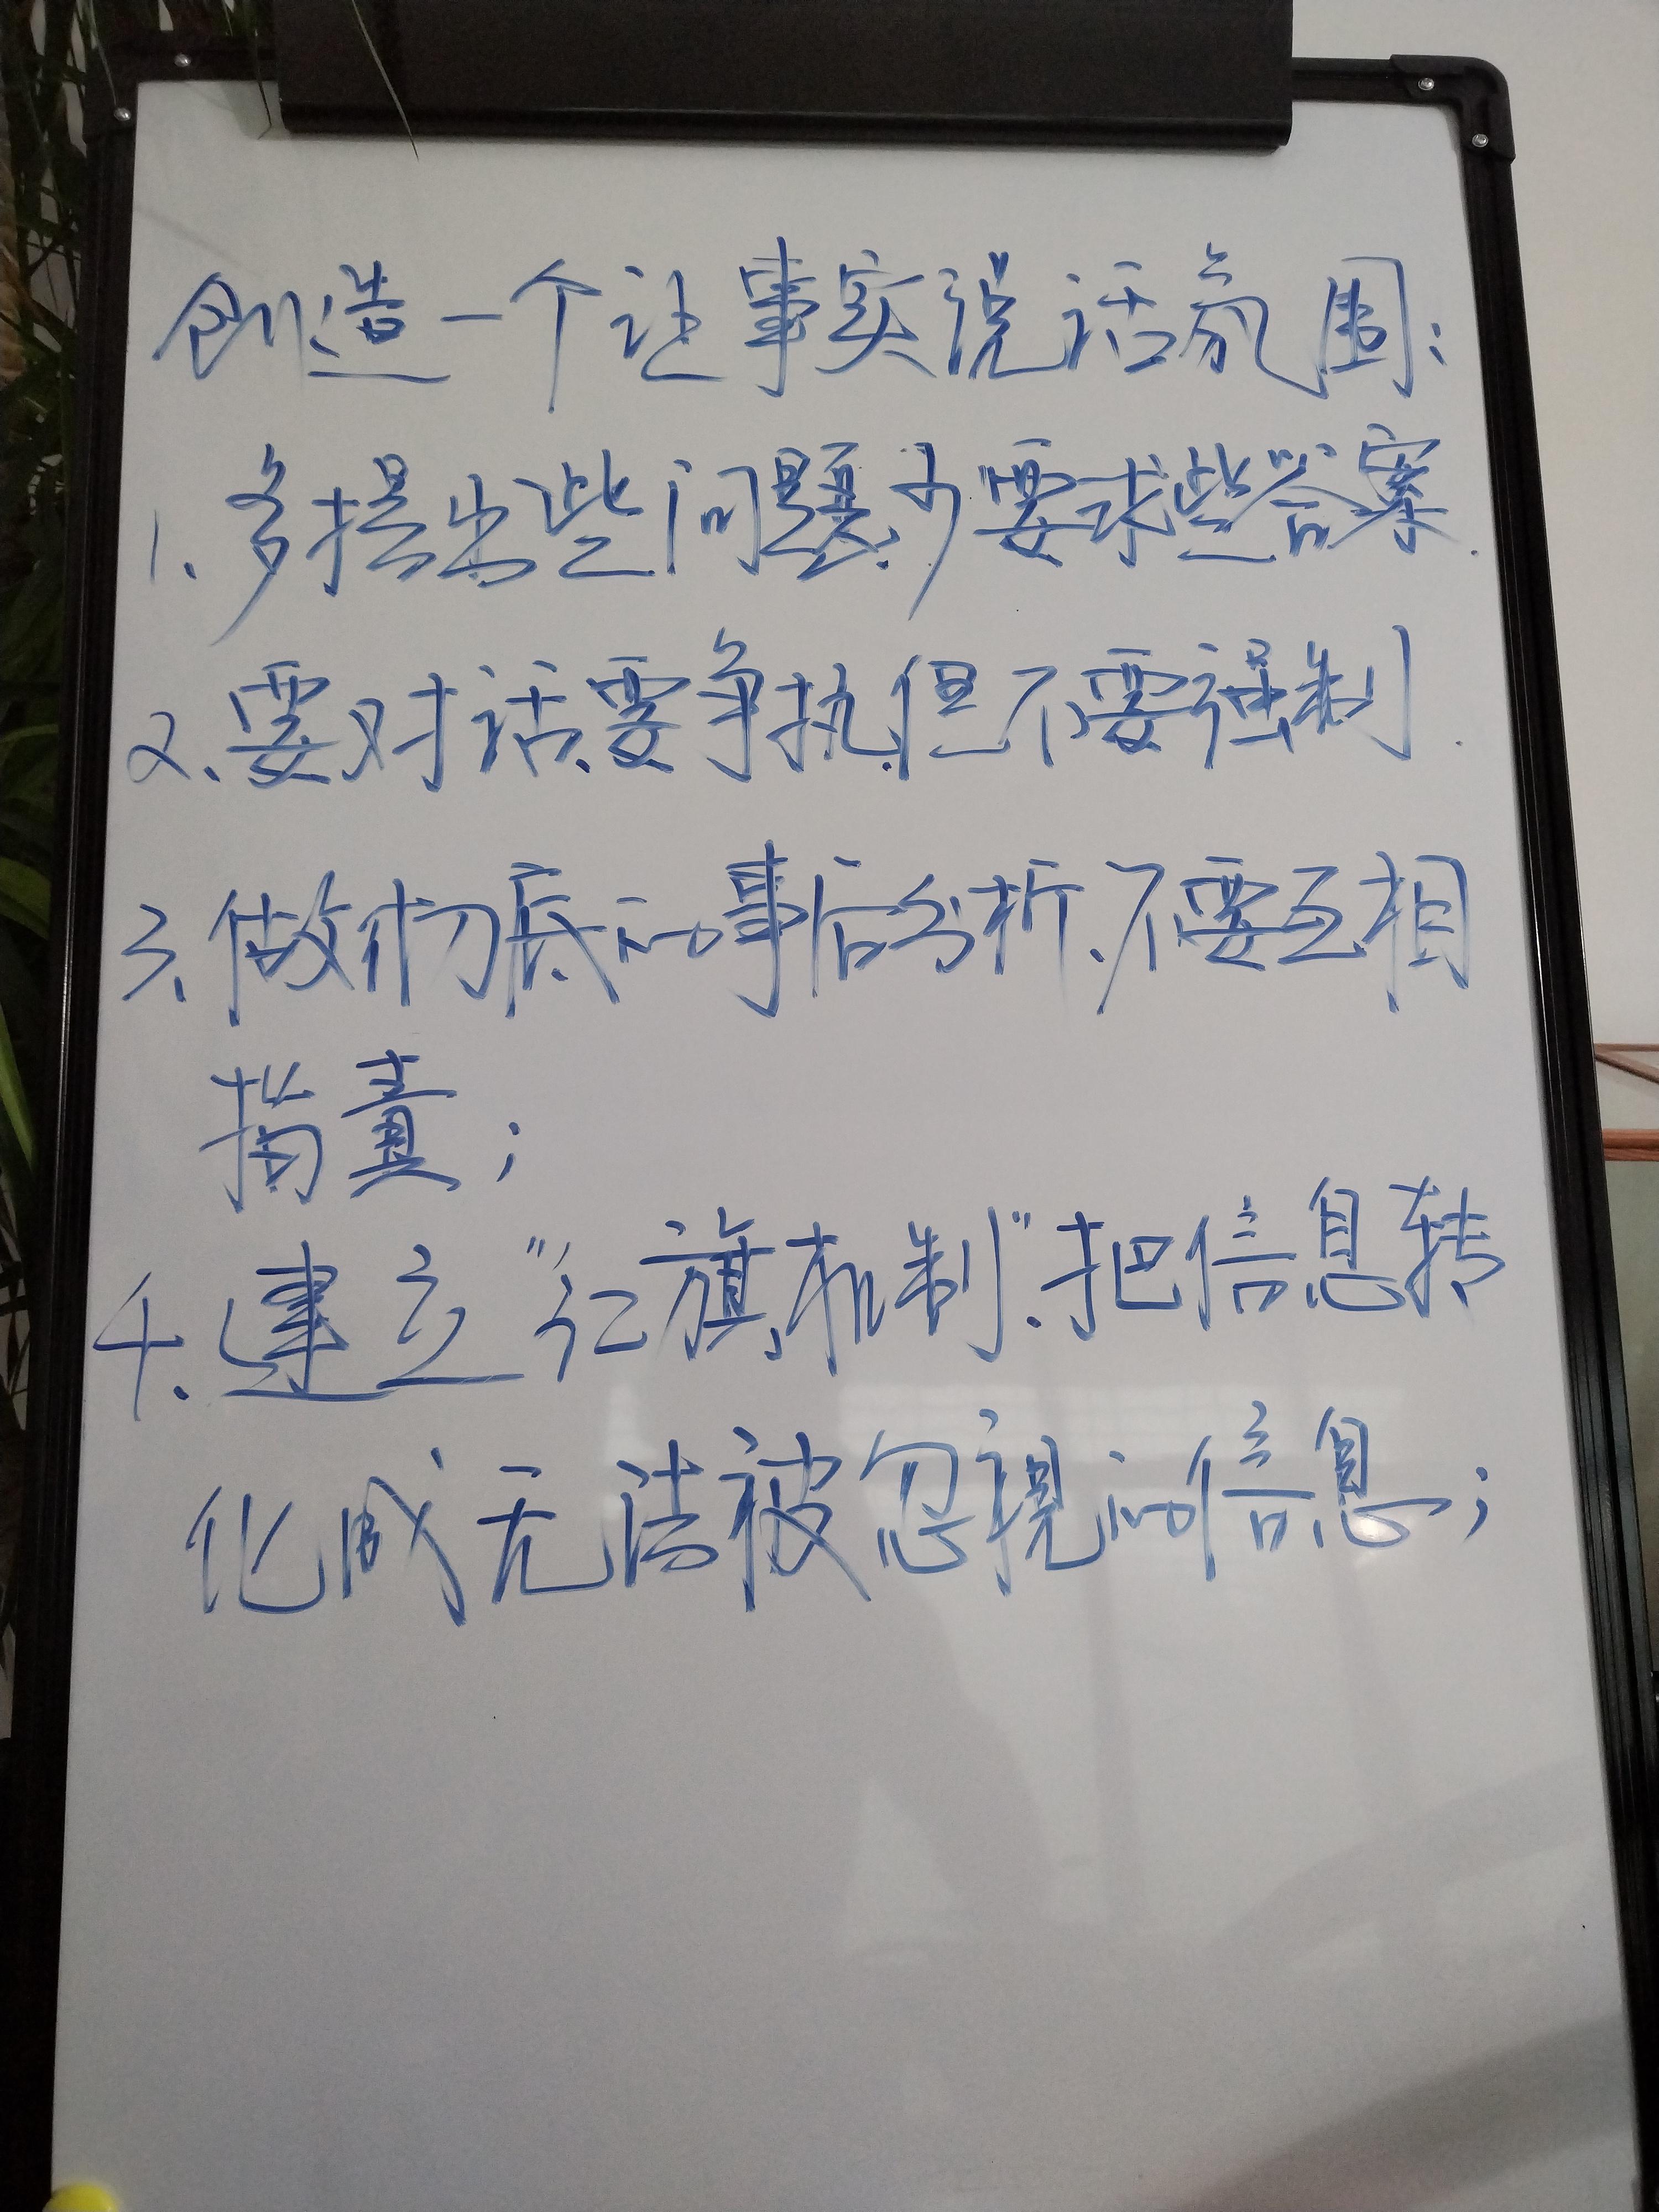 创造一个让事实说话氛围：
1、多提出些问题、少要求些答案.
2、要对话、要争执、但不要强制.
3、做彻底的事后分析、不要互相
指责；
4、建立“红旗机制”、把信息转
化成无法被忽视的信息；